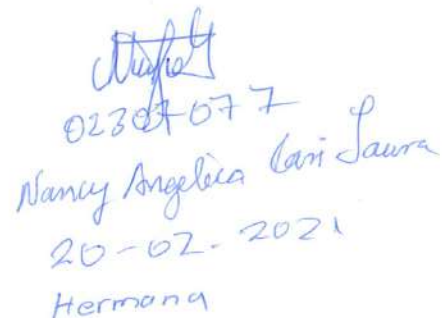 02307077
Nancy Angelica Cari Laura
20-02-2021
Hermana